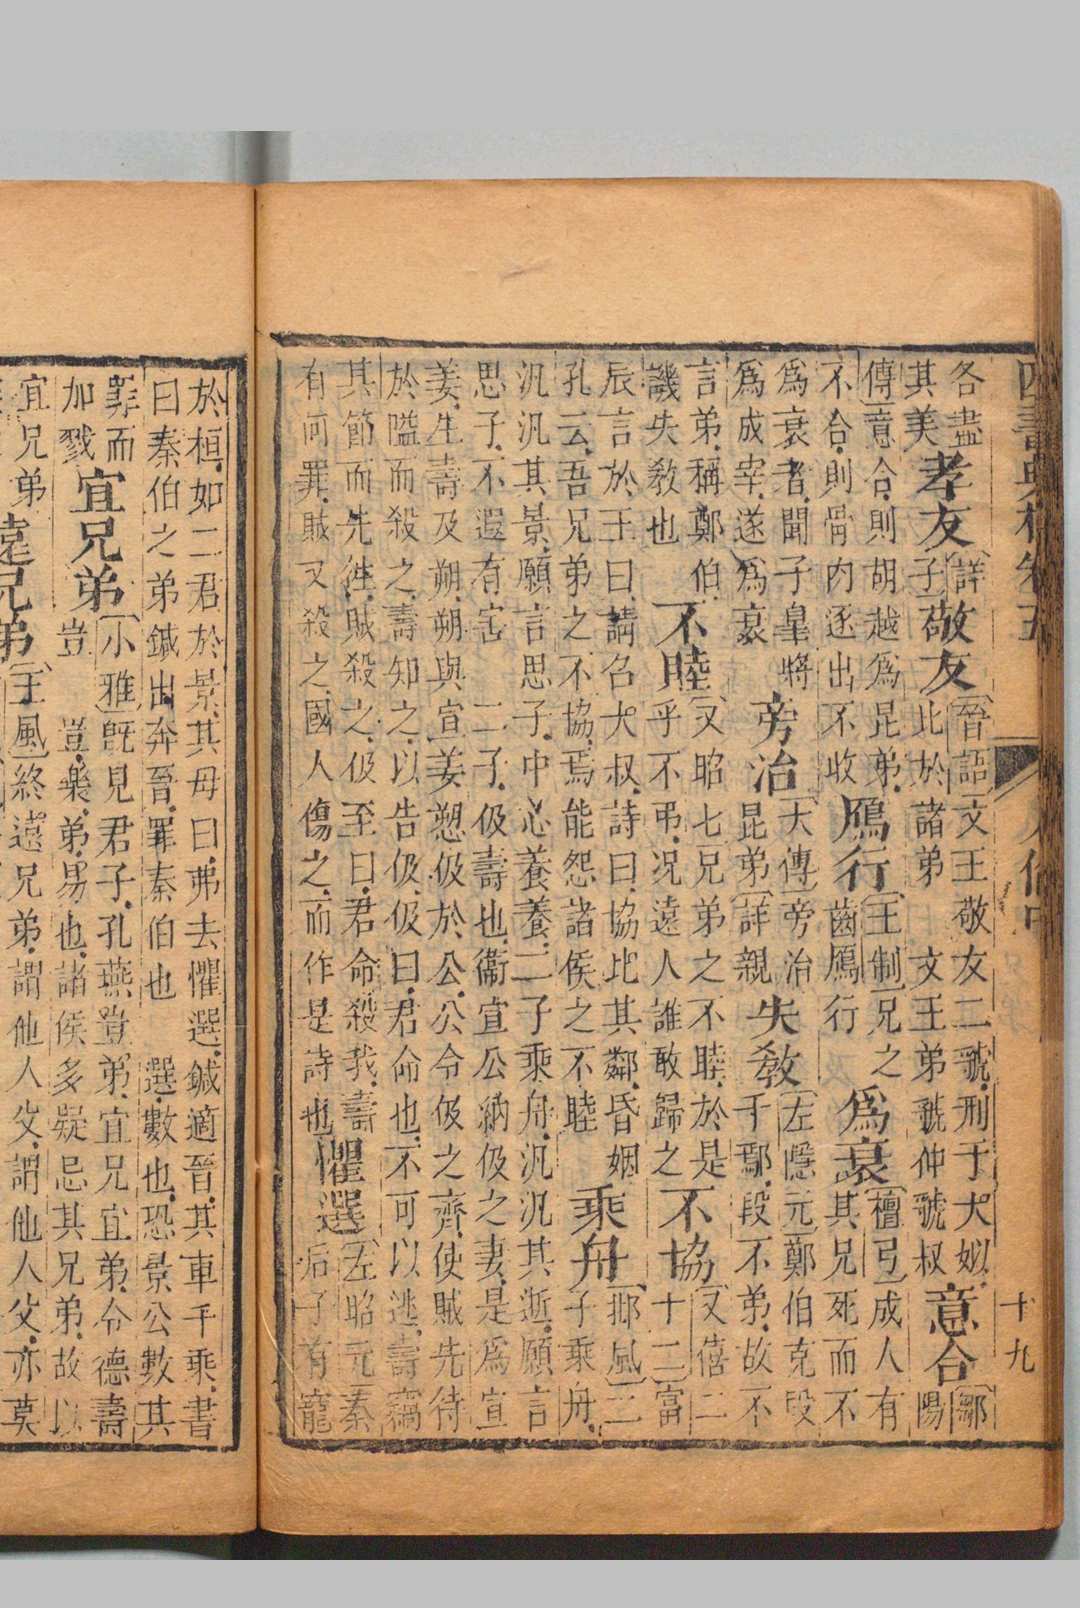 四書典林卷五 人倫中 十九
各盡其美 孝友 〔詳子 敬友 〔晉語〕文王敬友二虢.刑于大姒.比於諸弟 文王弟虢仲虢叔 意合 〔鄒陽
傳〕意合.則胡越為昆弟.不合.則骨肉逐出不收 鴈行 〔王制〕兄之齒鴈行 為衰 〔檀弓〕成人有其兄死而不
為衰者.聞子臯將為成宰.遂為衰 旁治 〔大傳〕旁治昆弟〔詳親 失教 〔左隱元〕鄭伯克段于鄢.段不弟.故不
言弟.稱鄭伯.譏失教也 不睦 〔又昭七〕兄弟之不睦.於是乎不弔.况遠人誰敢歸之 不協 〔又僖二十二〕富
辰言於王曰.請召大叔.詩曰.協比其鄰.昏姻孔云.吾兄弟之不協.焉能怨諸侯之不睦 乘舟 〔邶風〕二子乘舟.
汎汎其景.願言思子.中心養養.二子乘舟.汎汎其逝.願言思子.不遐有害 二子.伋壽也.衞宣公納伋之妻.是為宣
姜.生壽及朔.朔與宣姜愬伋於公.公令伋之齊.使賊先待於隘而殺之.壽知之.以告伋.伋曰.君命也.不可以逃.壽竊
其節而先往.賊殺之.伋至曰.君命殺我.壽有何罪.賊又殺之.國人傷之.而作是詩也 懼選 〔左昭元〕秦后子有寵
於桓.如二君於景.其母曰.弗去懼選.鍼適晉.其車千乘.書曰秦伯之弟鍼出奔晉.罪秦伯也 選.數也.恐景公數其
罪而加戮 宜兄弟 〔小雅〕既見君子.孔燕豈弟.宜兄宜弟.令德壽豈 豈.樂.弟.易也.諸侯多疑忌其兄弟.故以
宜兄弟 遠兄弟 〔王風〕終遠兄弟.謂他人父.謂他人父.亦莫